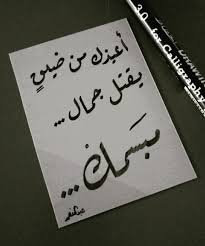 أعيذك من ضيقٍ
يقتل جمال ...
مبسمك ...
3.0 for Calligraphy